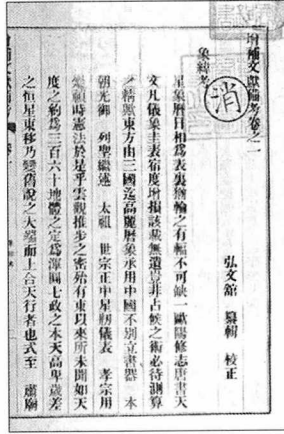 增補文獻備考卷之二
弘文館 纂輯 校正
象緯考
消
星象曆日相為表裏猶輪之有輻不可缺一歐陽修志唐書天
文凡儀象圭表宿度增損該載無遺豈非占候之術必待測算
之精歟東方由三國迄高麗曆象承用中國不別立書器 本
朝光御 列聖繼述 太祖 世宗正中星刱儀表 孝宗用
時憲法於是乎雲觀推步之密殆有東以來所未聞如天
度之約爲三百六十地體之定爲渾圓七政之本天高卑歲差
之恒星東移乃變舊說之大端而上合天行者也式至 肅廟